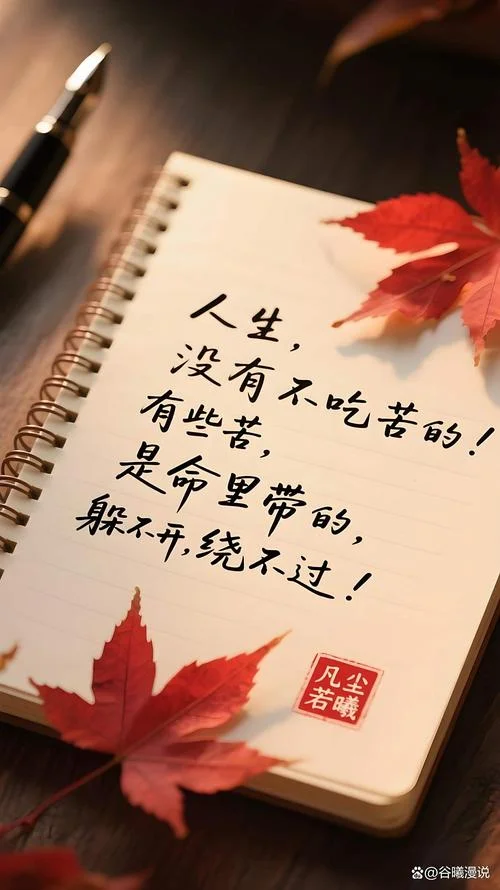 人生，
没有不吃苦的！
有些苦，
是命里带的，
躲不开，绕不过！
凡尘
若曦
@谷曦漫说